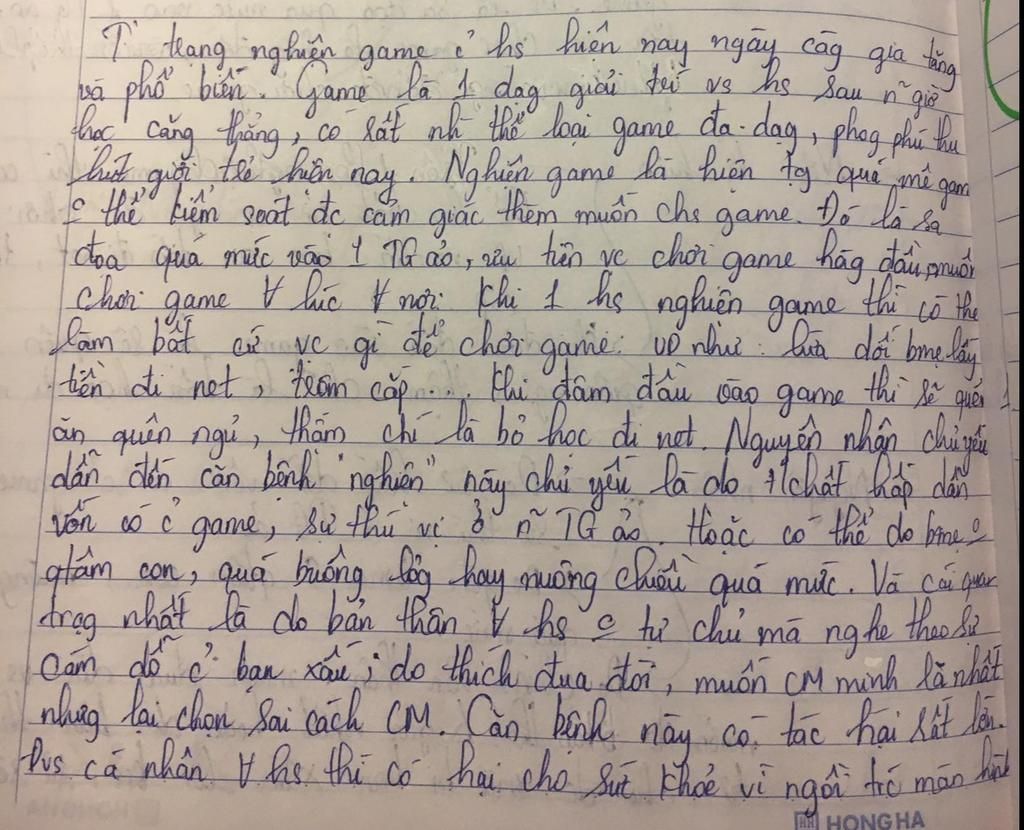 T² trạng nghiện game ở hs hiện nay ngày càg gia tăng
và phổ biến. Game là 1 dạg giải trí vs hs sau n~ giờ
học căng thẳng, có rất nh thể loại game đa dạg, phog phú thu
hút giới trẻ hiện nay. Nghiện game là hiện tg quá mê gam
thể kiểm soát đc cảm giác thèm muốn chs game. Đó là sa
đọa quá mức vào 1 TG ảo, ưu tiên vc chơi game hàg đầu, muốn
chơi game ∀ lúc ∀ nơi. Khi 1 hs nghiện game thì có thể
làm bất cứ vc gì để chơi game. VD như: lừa dối bmẹ lấy
tiền đi net, trộm cắp... Khi đâm đầu vào game thì sẽ quên
ăn quên ngủ, thậm chí là bỏ học đi net. Nguyên nhân chủ yếu
dẫn đến căn bệnh "nghiện" này chủ yếu là do t/chất hấp dẫn
vốn có ở game, sự thú vị ở n~ TG ảo. Hoặc có thể do bmẹ
qtâm con, quá buông lỏg hay nuông chiều quá mức. Và cái quan
trọg nhất là do bản thân ∀ hs tự chủ mà nghe theo sự
cám dỗ ở bạn xấu, do thích đua đòi, muốn CM mình là nhất
nhưng lại chọn sai cách CM. Căn bệnh này có tác hại rất lớn.
Đvs cá nhân ∀ hs thì có hại cho sức khoẻ vì ngồi trc màn hình
HONG HA